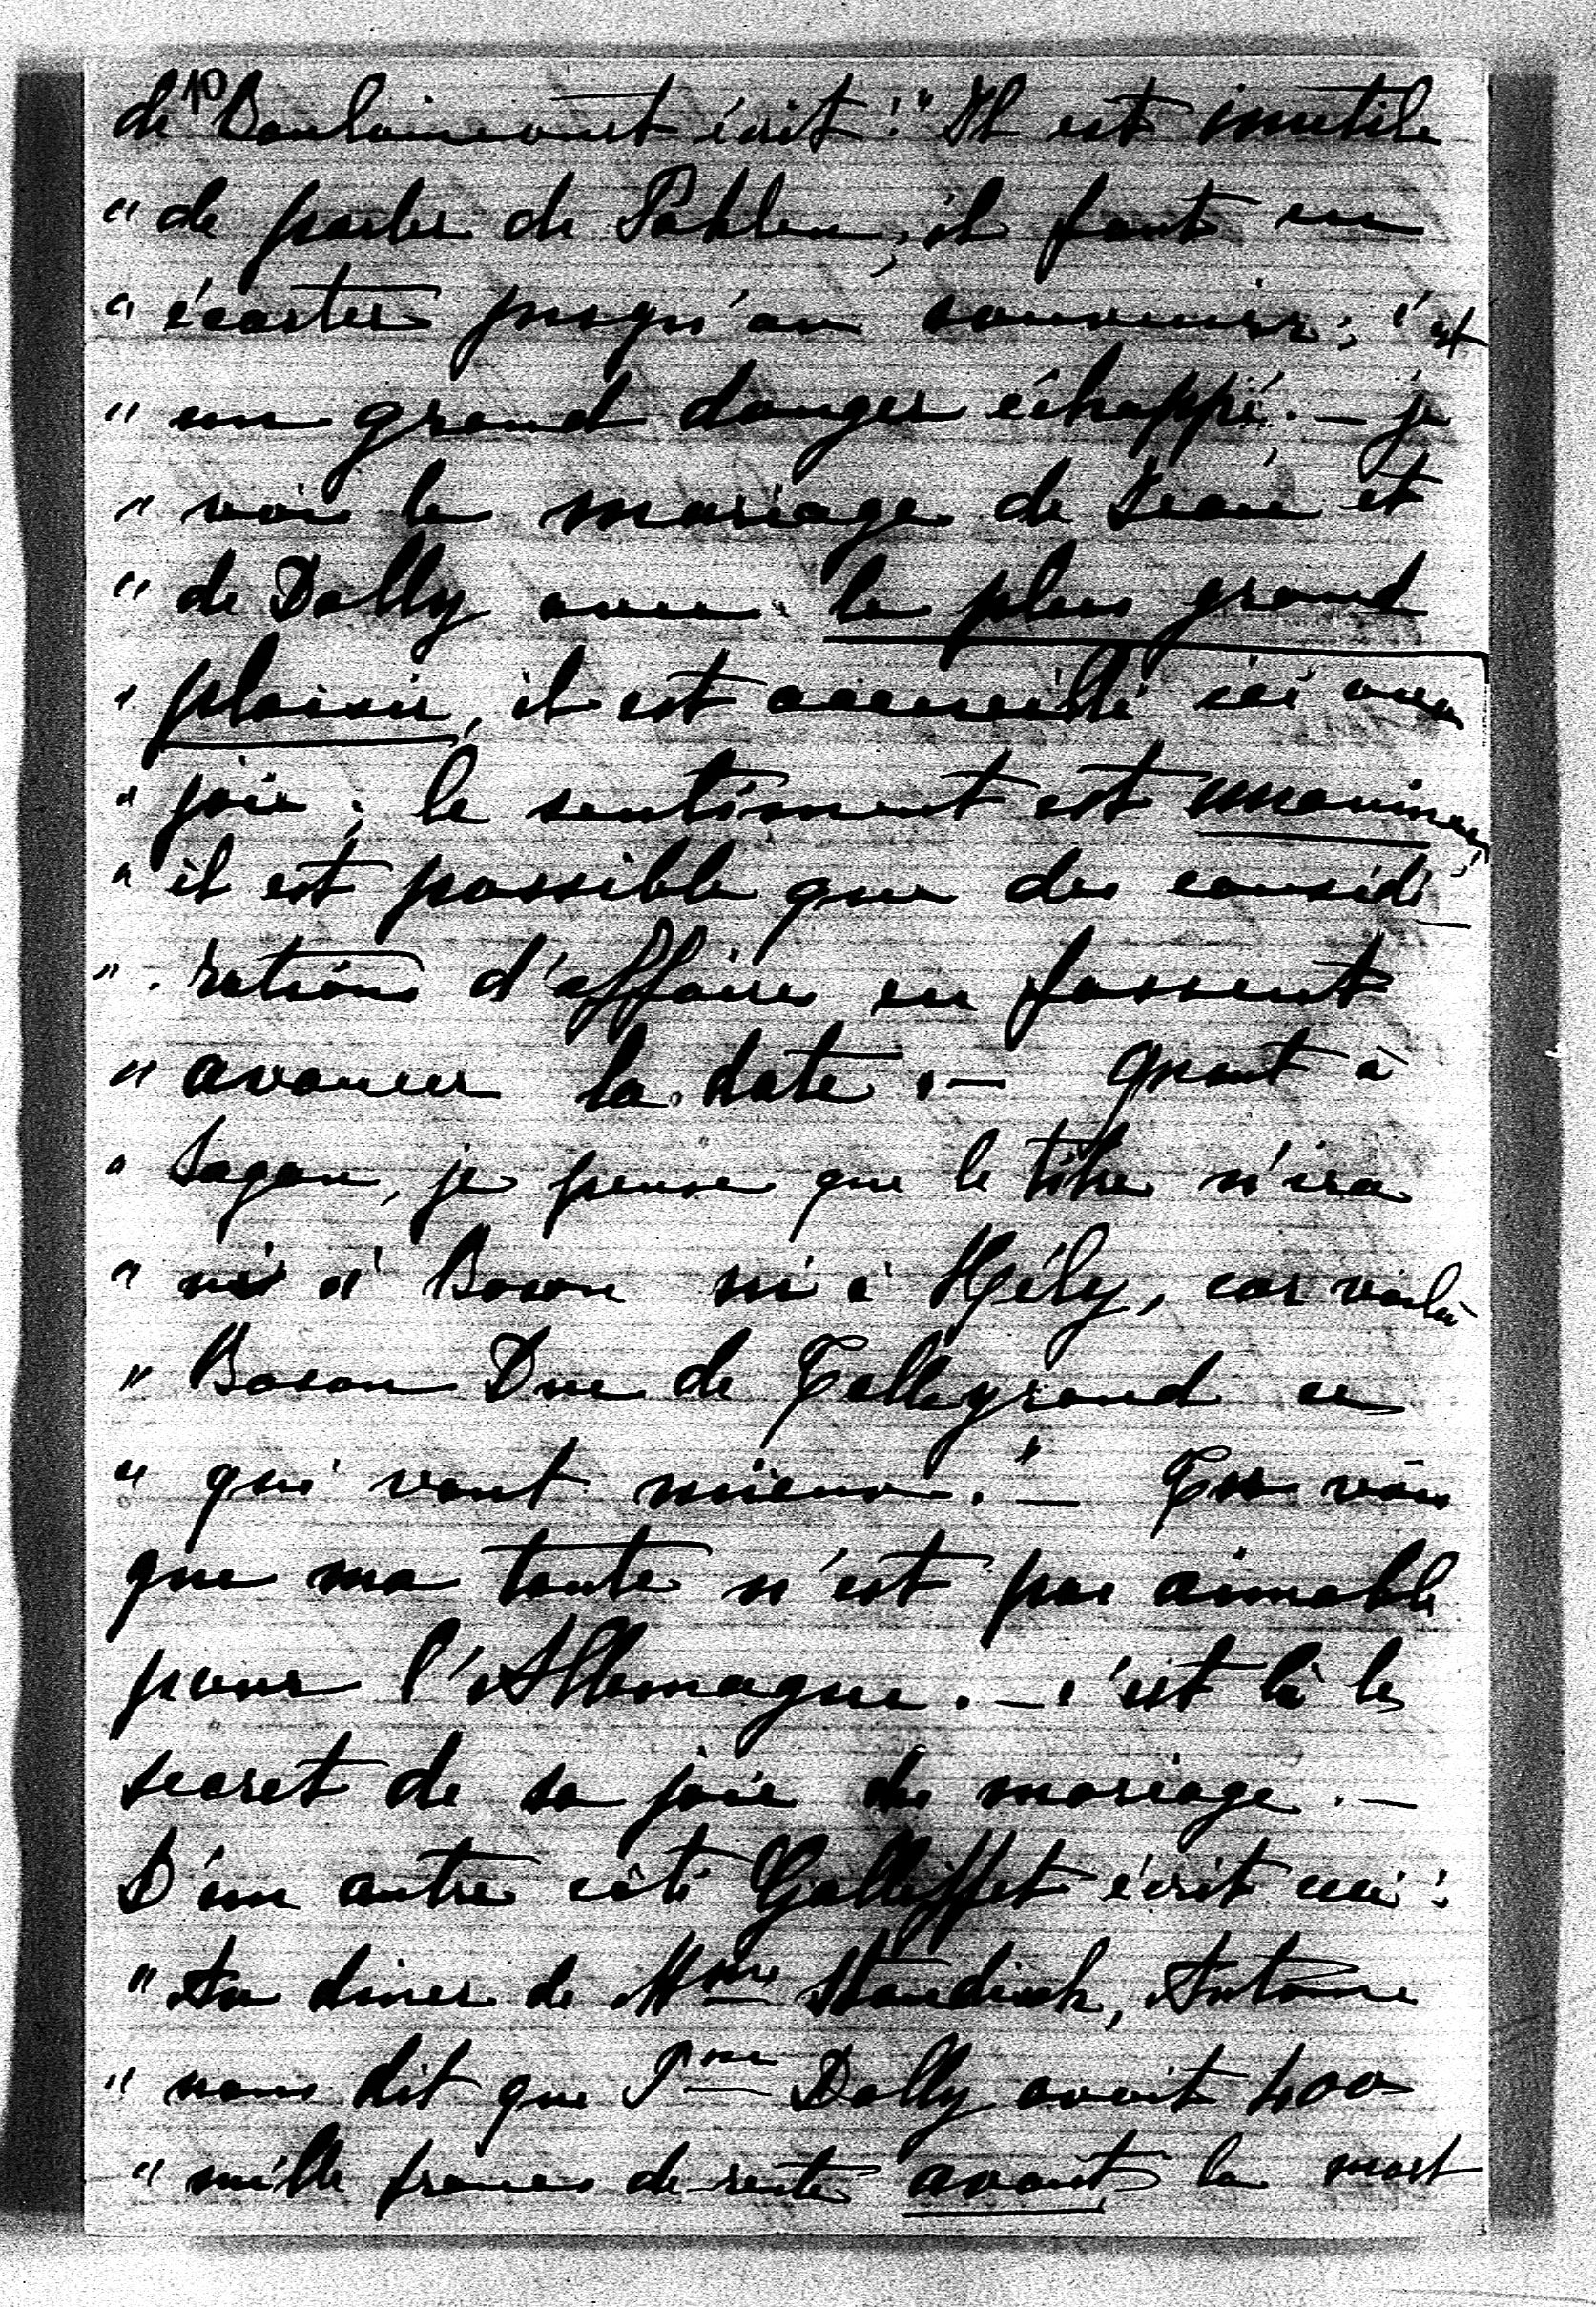 10
de Beaulaincourt écrit : " Il est inutile
" de parler de Pahlen, il faut en
" écarter jusqu'au souvenir ; c'est
" un grand danger échappé. — je
" vois le mariage de Jean et
" de Dolly avec le plus grand
" plaisir, il est accueilli ici avec
" joie ; le sentiment est unanime,
" il est possible que des considé-
" rations d'affaires en fassent
" avancer la date. — Quant à
" Sagan, je pense que le titre n'ira
" ni à Boson ni à Hély, car voilà
" Boson Duc de Talleyrand ce
" qui vaut mieux. " — Tu vois
que ma tante n'est pas aimable
pour l'Allemagne. — c'est là le
secret de sa joie du mariage. —
D'un autre côté Galliffet écrit ceci :
" Au diner de Mme Standish, Antoine
" nous dit que Psse Dolly avait 400
" mille francs de rente avant la mort